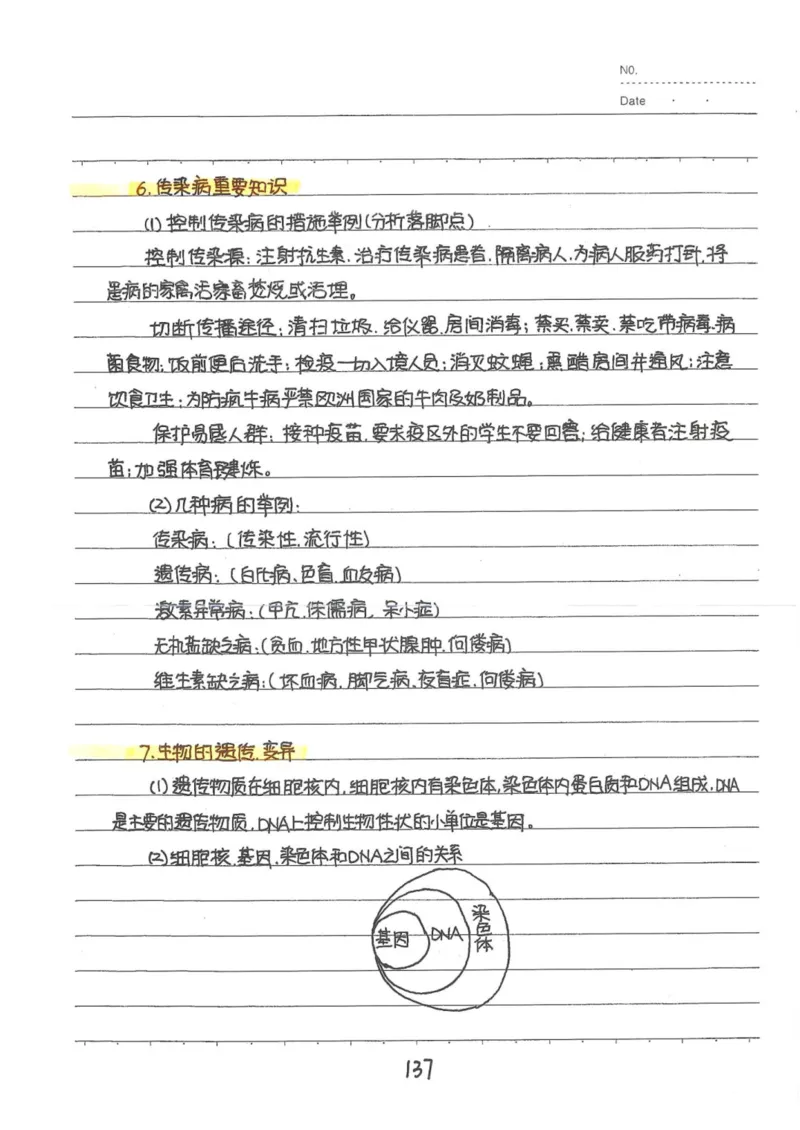 NO.
Date · ·
6.传染病重要知识
(1)控制传染病的措施举例(分析落脚点)
控制传染源:注射抗生素.治疗传染病患者.隔离病人.为病人服药打针.将
患病的家禽活家畜焚烧或活埋。
切断传播途径:清扫垃圾.给仪器.房间消毒;禁买.禁卖.禁吃带病毒.病
菌食物;饭前便后洗手;检疫一切入境人员;消灭蚊蝇;熏醋房间并通风;注意
饮食卫生;为防疯牛病严禁欧洲国家的牛肉及奶制品。
保护易感人群:接种疫苗.要求疫区外的学生不要回
;给健康者注射疫
苗;加强体育锻炼。
(2)几种病的举例:
传染病:(传染性.流行性)
遗传病:(白化病、色盲.血友病)
激素异常病:(甲亢.侏儒病,呆小症)
无机盐缺乏病:(贫血.地方性甲状腺肿.佝偻病)
维生素缺乏病:(坏血病.脚气病.夜盲症.佝偻病)
7.生物的遗传.变异
(1)遗传物质在细胞核内,细胞核内有染色体,染色体内蛋白质和DNA组成.DNA
是主要的遗传物质.DNA上控制生物性状的小单位是基因。
(2)细胞核.基因.染色体和DNA之间的关系
基因 DNA 染色体
137